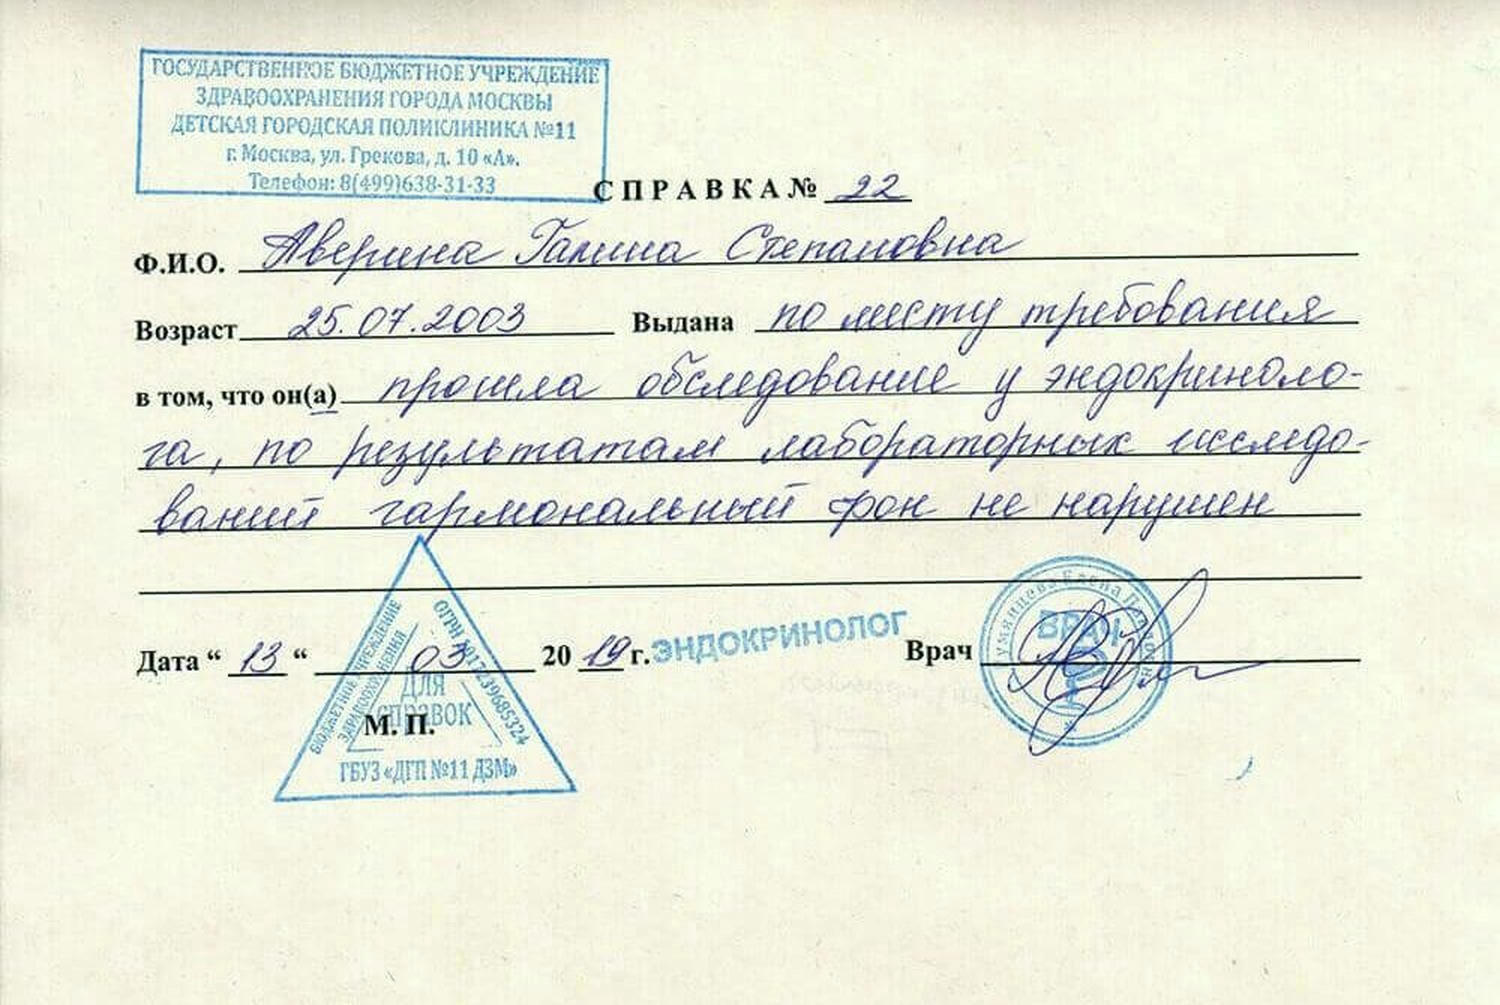 ГОСУДАРСТВЕННОЕ БЮДЖЕТНОЕ УЧРЕЖДЕНИЕ
ЗДРАВООХРАНЕНИЯ ГОРОДА МОСКВЫ
ДЕТСКАЯ ГОРОДСКАЯ ПОЛИКЛИНИКА №11
г. Москва, ул. Грекова, д. 10 «А».
Телефон: 8(499)638-31-33
СПРАВКА № 22
Ф.И.О. Аверина Галина Степановна
Возраст 25.07.2003 Выдана по месту требования
в том, что он(а) прошла обследование у эндокриноло-
га, по результатам лабораторных исследо-
ваний гармональный фон не нарушен
Дата “ 13 “ 03 20 19 г. ЭНДОКРИНОЛОГ Врач
ВРАЧ
Елена
БЮДЖЕТНОЕ УЧРЕЖДЕНИЕ
ЗДРАВООХРАНЕНИЯ
ОГРН
ДЛЯ
СПРАВОК
М. П.
ГБУЗ «ДГП №11 ДЗМ»